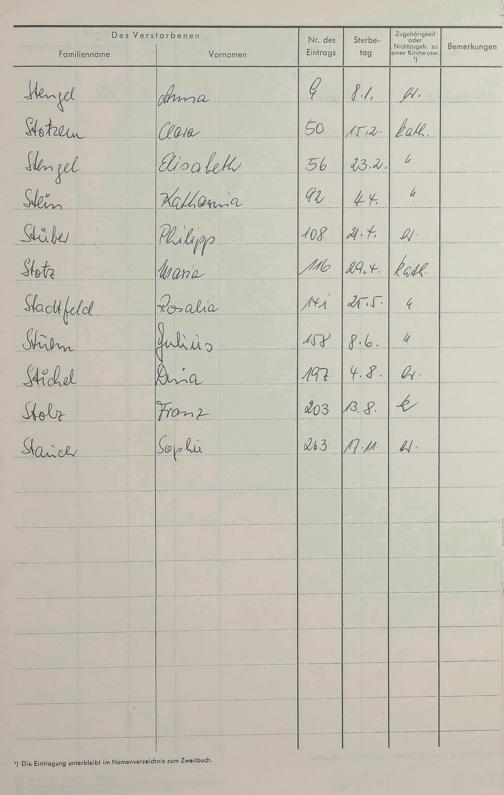 Des Verstorbenen
Familienname Vornamen Nr. des Eintrags Sterbe- tag Zugehörigkeit oder Nichtzugeh. zu einer Kirche usw. ¹) Bemerkungen
Stengel Anna 9 8.1. ev.
Stotzem Clara 50 15.2. kath.
Stengel Elisabeth 56 23.2. "
Stein Katharina 92 4.4. "
Stüber Philipp 108 21.4. ev.
Stotz Maria 116 29.4. kath.
Stadtfeld Rosalia 141 25.5. "
Sturm Julius 158 8.6. "
Stichel Dina 197 4.8. ev.
Stolz Franz 203 13.8. k
Stauch Sophie 263 17.11. ev.
¹) Die Eintragung unterbleibt im Namenverzeichnis zum Zweitbuch.